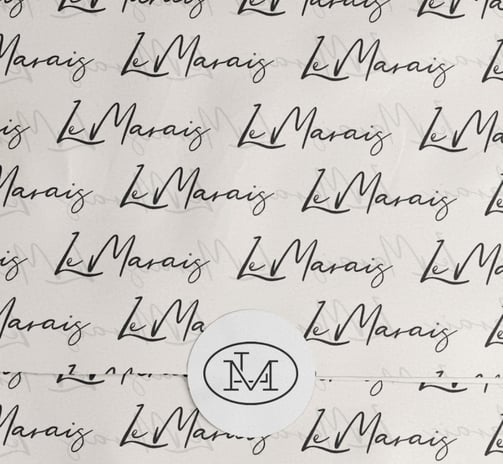 Le Marais Le Marais
Marais Le Marais Le Marais
Le Marais Le Marais Le Ma
Marais Le Marais Le Marais
Le Marais Le Marais Le Ma
Marais Le Ma Le Marais
LM
Marais Le Marais Le Marais